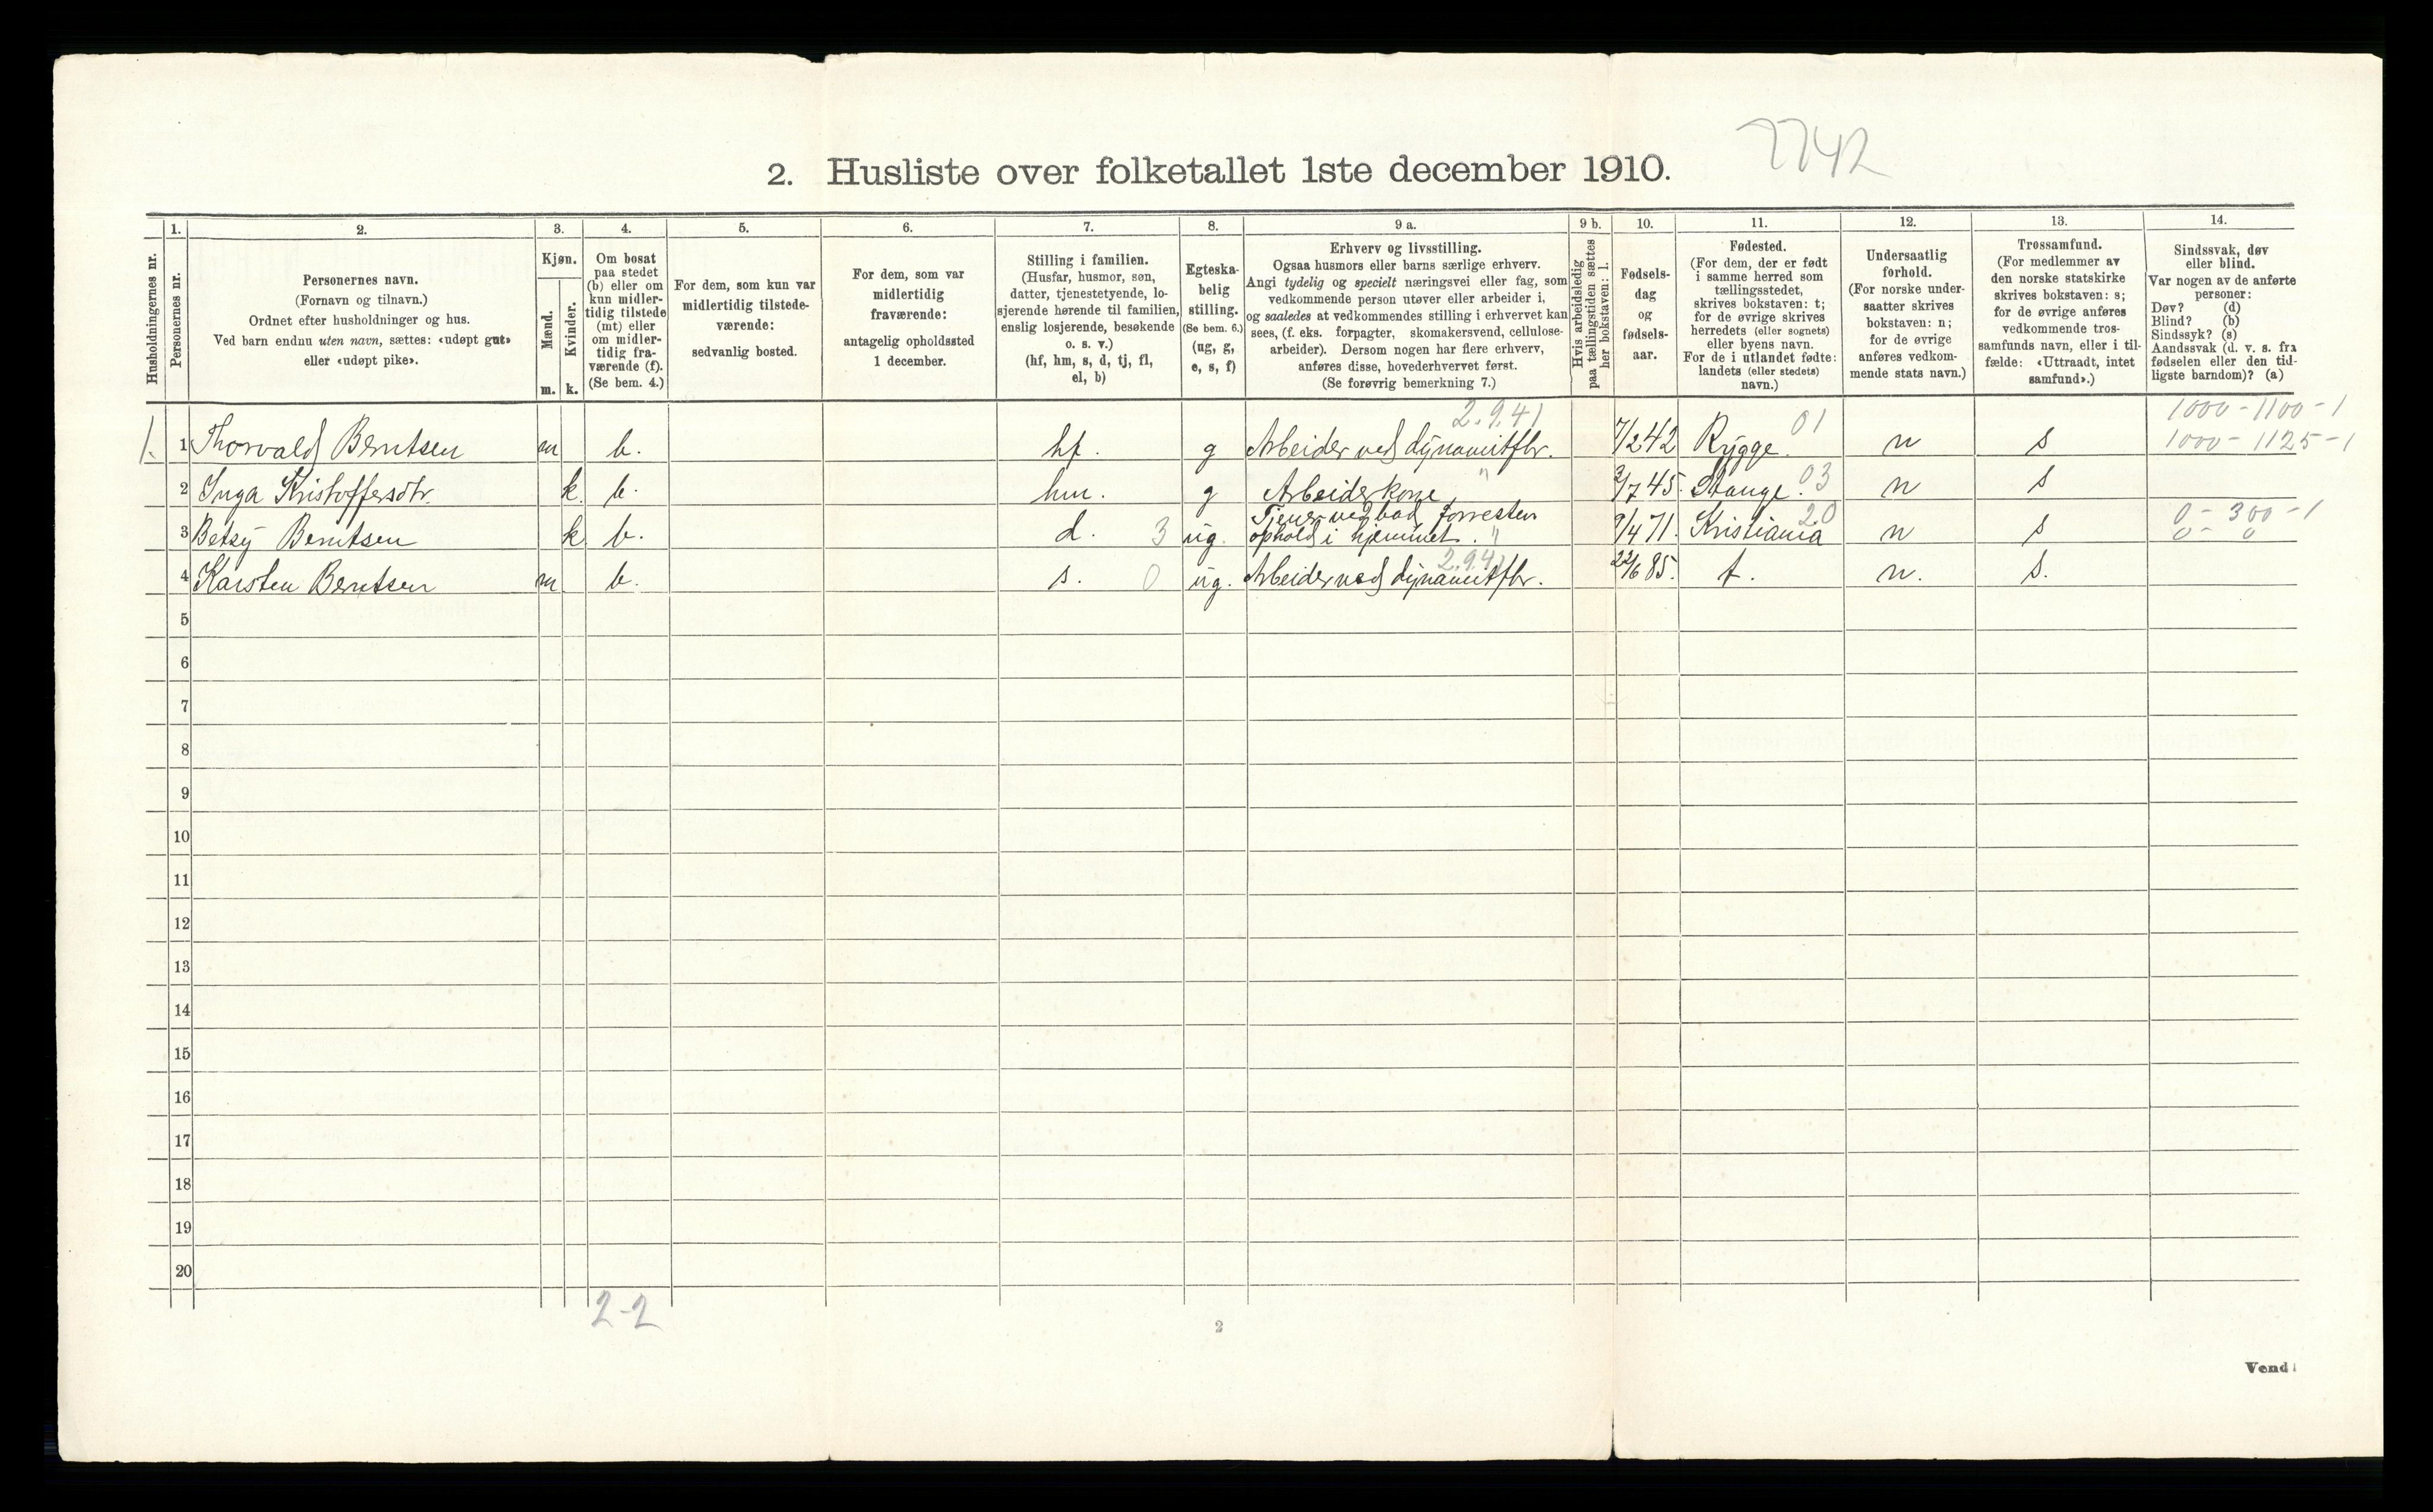 7742
2. Husliste over folketallet 1ste december 1910.
Husholdningernes nr.
1. Personernes nr.
2. Personernes navn. (Fornavn og tilnavn.) Ordnet efter husholdninger og hus. Ved barn endnu uten navn, sættes: «udøpt gut» eller «udøpt pike».
3. Kjøn. Mænd. m. Kvinder. k.
4. Om bosat paa stedet (b) eller om kun midlertidig tilstede (mt) eller om midlertidig fraværende (f). (Se bem. 4.)
5. For dem, som kun var midlertidig tilstedeværende: sedvanlig bosted.
6. For dem, som var midlertidig fraværende: antagelig opholdssted 1 december.
7. Stilling i familien. (Husfar, husmor, søn, datter, tjenestetyende, losjerende hørende til familien, enslig losjerende, besøkende o. s. v.) (hf, hm, s, d, tj, fl, el, b)
8. Egteskabelig stilling. (Se bem. 6.) (ug, g, e, s, f)
9 a. Erhverv og livsstilling. Ogsaa husmors eller barns særlige erhverv. Angi tydelig og specielt næringsvei eller fag, som vedkommende person utøver eller arbeider i, og saaledes at vedkommendes stilling i erhvervet kan sees, (f. eks. forpagter, skomakersvend, cellulosearbeider). Dersom nogen har flere erhverv, anføres disse, hovederhvervet først. (Se forøvrig bemerkning 7.)
9 b. Hvis arbeidsledig paa tællingstiden sættes her bokstaven: l.
10. Fødselsdag og fødselsaar.
11. Fødested. (For dem, der er født i samme herred som tællingsstedet, skrives bokstaven: t; for de øvrige skrives herredets (eller sognets) eller byens navn. For de i utlandet fødte: landets (eller stedets) navn.)
12. Undersaatlig forhold. (For norske undersaatter skrives bokstaven: n; for de øvrige anføres vedkommende stats navn.)
13. Trossamfund. (For medlemmer av den norske statskirke skrives bokstaven: s; for de øvrige anføres vedkommende trossamfunds navn, eller i tilfælde: «Uttraadt, intet samfund».)
14. Sindssvak, døv eller blind. Var nogen av de anførte personer: Døv? (d) Blind? (b) Sindssyk? (s) Aandssvak (d. v. s. fra fødselen eller den tidligste barndom)? (a)
2.9.41 01 1000-1100-1
1. 1 Thorvald Berntsen m b. hf. g Arbeider ved dynamitfbr. 7/2 42 Rygge. n s 1000-1125-1
2 Inga Kristoffersdtr. k. b. hm. g Arbeiderkone " 3/7 45. Stange. 03 n s
3 Betsy Berntsen k b. d. 3 ug. Tjener ved bad forresten ophold i hjemmet. " 9/4 71. Kristiania 20 n s 0-300-1 0-0
4 Karsten Berntsen m b. s. 0 ug. Arbeider ved dynamitfbr. 2.9.41 22/6 85. t. n. s.
5
6
7
8
9
10
11
12
13
14
15
16
17
18
19
20
2-2
2
Vend!